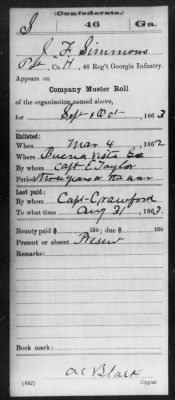 (Confederate.)
S 46 Ga.
J. F. Simmons
Pvt, Co. H, 46 Reg't Georgia Infantry.
Appears on
Company Muster Roll
of the organization named above,
for Sept & Oct, 1863
Enlisted:
When Mar 4, 1862
Where Buena Vista Ga
By whom Capt E Taylor
Period Three years or the war
Last paid:
By whom Capt Crawford
To what time Aug 31, 1863.
Bounty paid $ 100; due $ 100
Present or absent Present
Remarks:
Book mark:
A C Black
(642) Copyist.